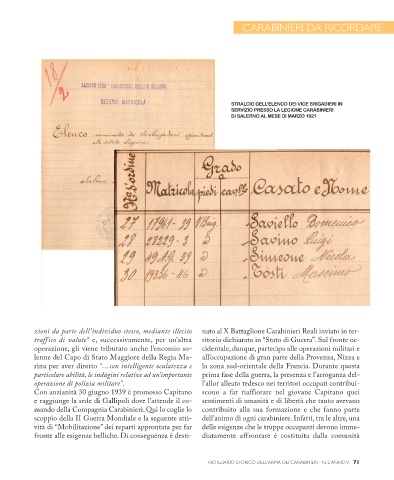 CARABINIERI DA RICORDARE
18/2
SEZIONE MATRICOLA
STRALCIO DELL'ELENCO DEI VICE BRIGADIERI IN
SERVIZIO PRESSO LA LEGIONE CARABINIERI
DI SALERNO AL MESE DI MARZO 1921
Elenco nominale dei
della Legione.
Salerno
N° d'ordine
Matricola
Grado
piedi
cavallo
Casato e Nome
27 17961-29 V.Brig. Saviello Domenico
28 28229-3 id Savino Luigi
29 Simeone Nicola
30 19326-46 id Tosti Massimo
zioni da parte dell'individuo stesso, mediante illecito
traffico di valute" e, successivamente, per un'altra
operazione, gli viene tributato anche l'encomio so-
lenne del Capo di Stato Maggiore della Regia Ma-
rina per aver diretto "…con intelligente oculatezza e
particolare abilità, le indagini relative ad un'importante
operazione di polizia militare".
Con anzianità 30 giugno 1939 è promosso Capitano
e raggiunge la sede di Gallipoli dove l'attende il co-
mando della Compagnia Carabinieri. Qui lo coglie lo
scoppio della II Guerra Mondiale e la seguente atti-
vità di "Mobilitazione" dei reparti approntata per far
fronte alle esigenze belliche. Di conseguenza è desti-
nato al X Battaglione Carabinieri Reali inviato in ter-
ritorio dichiarato in "Stato di Guerra". Sul fronte oc-
cidentale, dunque, partecipa alle operazioni militari e
all'occupazione di gran parte della Provenza, Nizza e
la zona sud-orientale della Francia. Durante questa
prima fase della guerra, la presenza e l'arroganza del-
l'allor alleato tedesco nei territori occupati contribui-
scono a far riaffiorare nel giovane Capitano quei
sentimenti di umanità e di libertà che tanto avevano
contribuito alla sua formazione e che fanno parte
dell'animo di ogni carabiniere. Infatti, tra le altre, una
delle esigenze che le truppe occupanti devono imme-
diatamente affrontare è costituita dalla comunità
NOTIZIARIO STORICO DELL'ARMA DEI CARABINIERI - N.2 ANNO V 71